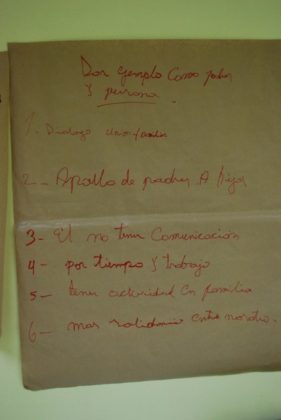 Dar ejemplo Como padres
y persona.
1. Dialogo
2 - Apollo de padres A hijos
3 - El no tener Comunicación
4 - por tiempo y trabajo
5 - tener autoridad en familia
6 - mas entre nosotros.